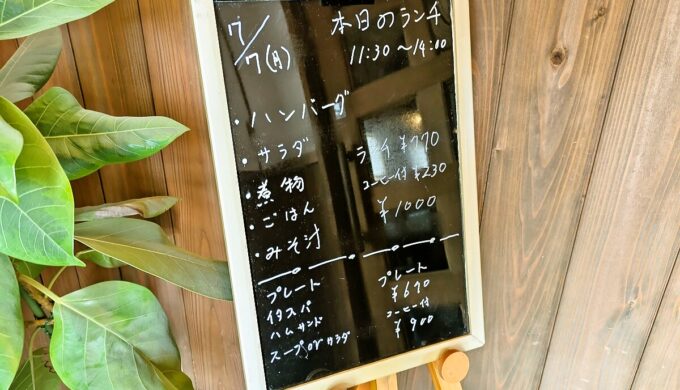 7/7(月) 本日のランチ
11:30～14:00
・ハンバーグ
・サラダ ランチ ¥770
・煮物 コーヒー付 ¥230
・ごはん ¥1000
・みそ汁
プレート プレート
イタスパ ¥670
ハムサンド コーヒー付
スープorサラダ ¥900